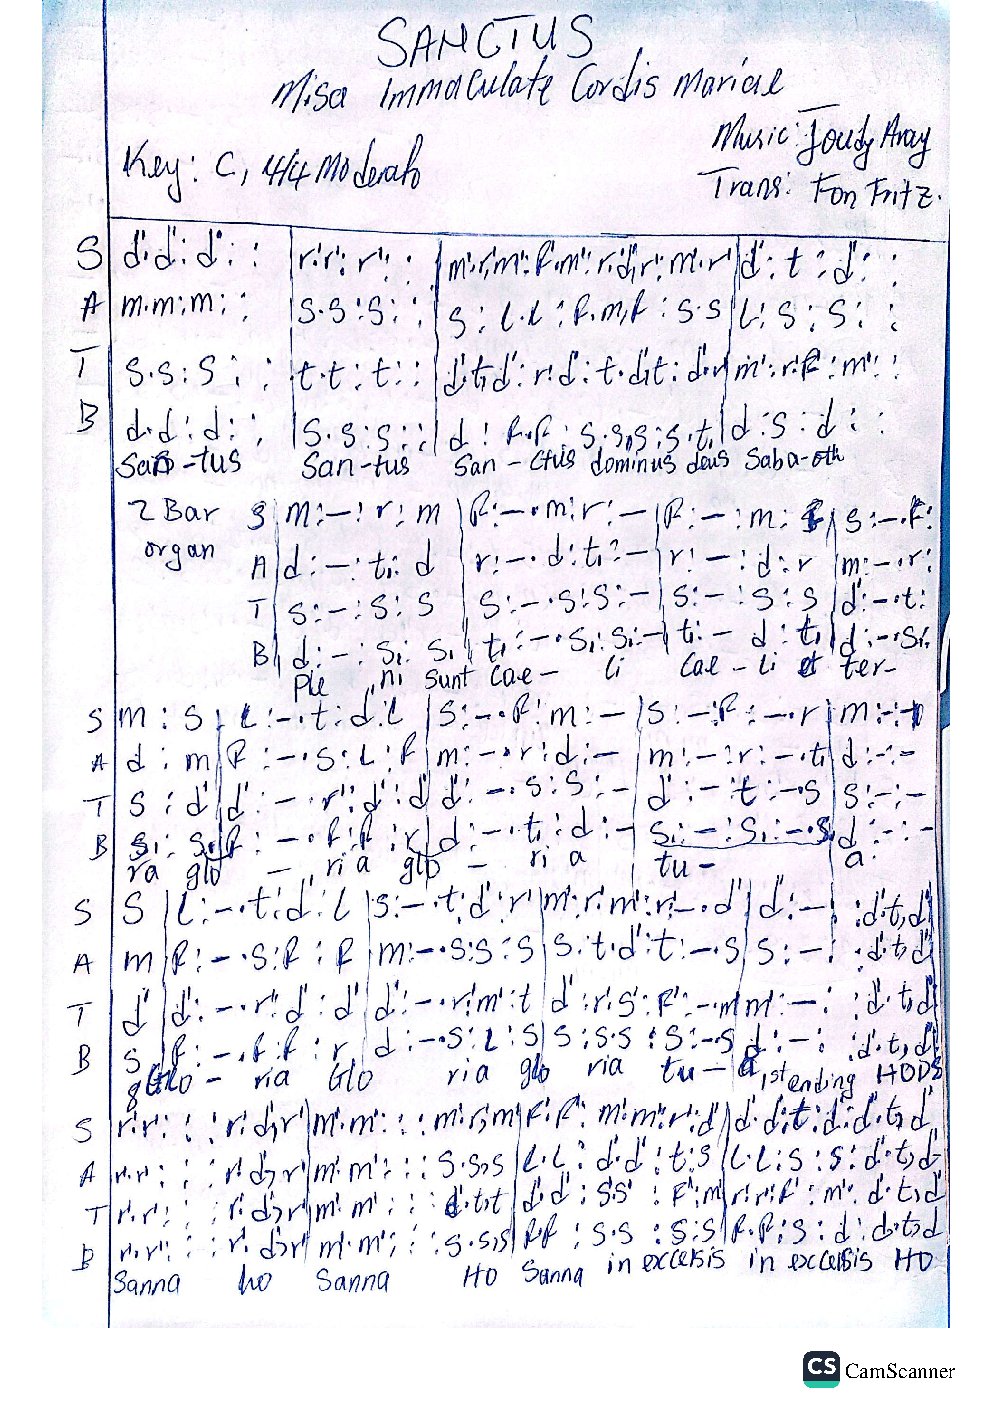 SANCTUS
Misa Immaculate Cordis Mariae
Key: C, 4/4 Moderato
Music: Joudy Aray
Trans: Fon Fritz.
S d'.d': d': : | r'.r': r': : | m'.r',m': f'.m': r'.d',r': m'.r' | d': t : d': :
A m.m: m: : | s.s: s: : | s : l.l : f.m,f : s.s | l: s : s: :
T s.s: s : : | t.t : t: : | d'.t,d': r'.d': t.d',t: d'.r' | m': r'.f': m': :
B d.d: d: : | s.s: s: : | d : f.f : s.s,s : s.t₁ | d : s : d : :
San-tus San-tus San-ctus dominus deus Saba-oth
2 Bar S m:-: r: m | f:-.m: r:- | f:-: m: f | s:-.f:
organ A d:-: t₁: d | r:-.d: t₁:- | r:-: d: r | m:-.r:
T s:-: s: s | s:-.s: s:- | s:-: s: s | d':-.t:
B d:-: s₁: s₁ | t₁:-.s₁: s₁:- | t₁:- d: t₁ | d:-.s₁:
Ple ni sunt Cae- li Cae-li et ter-
S m : s | l:-.t: d': l | s:-.f: m:- | s:-: f:-.r | m:-:-
A d : m | f:-.s: l: f | m:-.r: d:- | m:-: r:-.t₁ | d:-:-
T s : d' | d':-.r': d': d' | d':-.s: s:- | d':- t:-.s | s:-:-
B s₁: s₁ | f:-.f: f: r | d:-.t₁: d:- | s₁:-: s₁:-.s₁ | d:-:-
ra glo - ria glo - ri a tu- a.
S s | l:-.t: d': l | s:-.t: d': r' | m': r'.m': r':-.d' | d':-: : d'.t,d'
A m | f:-.s: f: f | m:-.s: s: s | s: t.d': t:-.s | s:-: : d'.t,d'
T d' | d':-.r': d': d' | d':-.r': m': t | d': r'.s': f':-.m' | m':-: : d'.t,d'
B s | f:-.f: f: r | d:-.s: l: s | s: s.s : s:-.s | d:-: : d'.t,d'
Glo - ria Glo ria glo ria tu- a 1st ending HODS
S r'.r': : : r'.d',r' | m'.m': : : m'.r',m' | f'.f': m'.m': r': d' | d'.d': t: d': d'.t,d'
A r'.r': : : r'.d',r' | m'.m': : : s.s,s | l.l: d'.d': t: s | l.l: s: s: d'.t,d'
T r'.r': : : r'.d',r' | m'.m': : : d'.t,t | d'.d': s'.s' : f': m' | r'.r': f': m': d'.t,d'
B r'.r': : : r'.d',r' | m'.m': : : s.s,s | f.f : s.s : s: s | f.f: s: d: d'.t,d
Sanna ho Sanna Ho Sanna in excelsis in excelsis HO
CS CamScanner